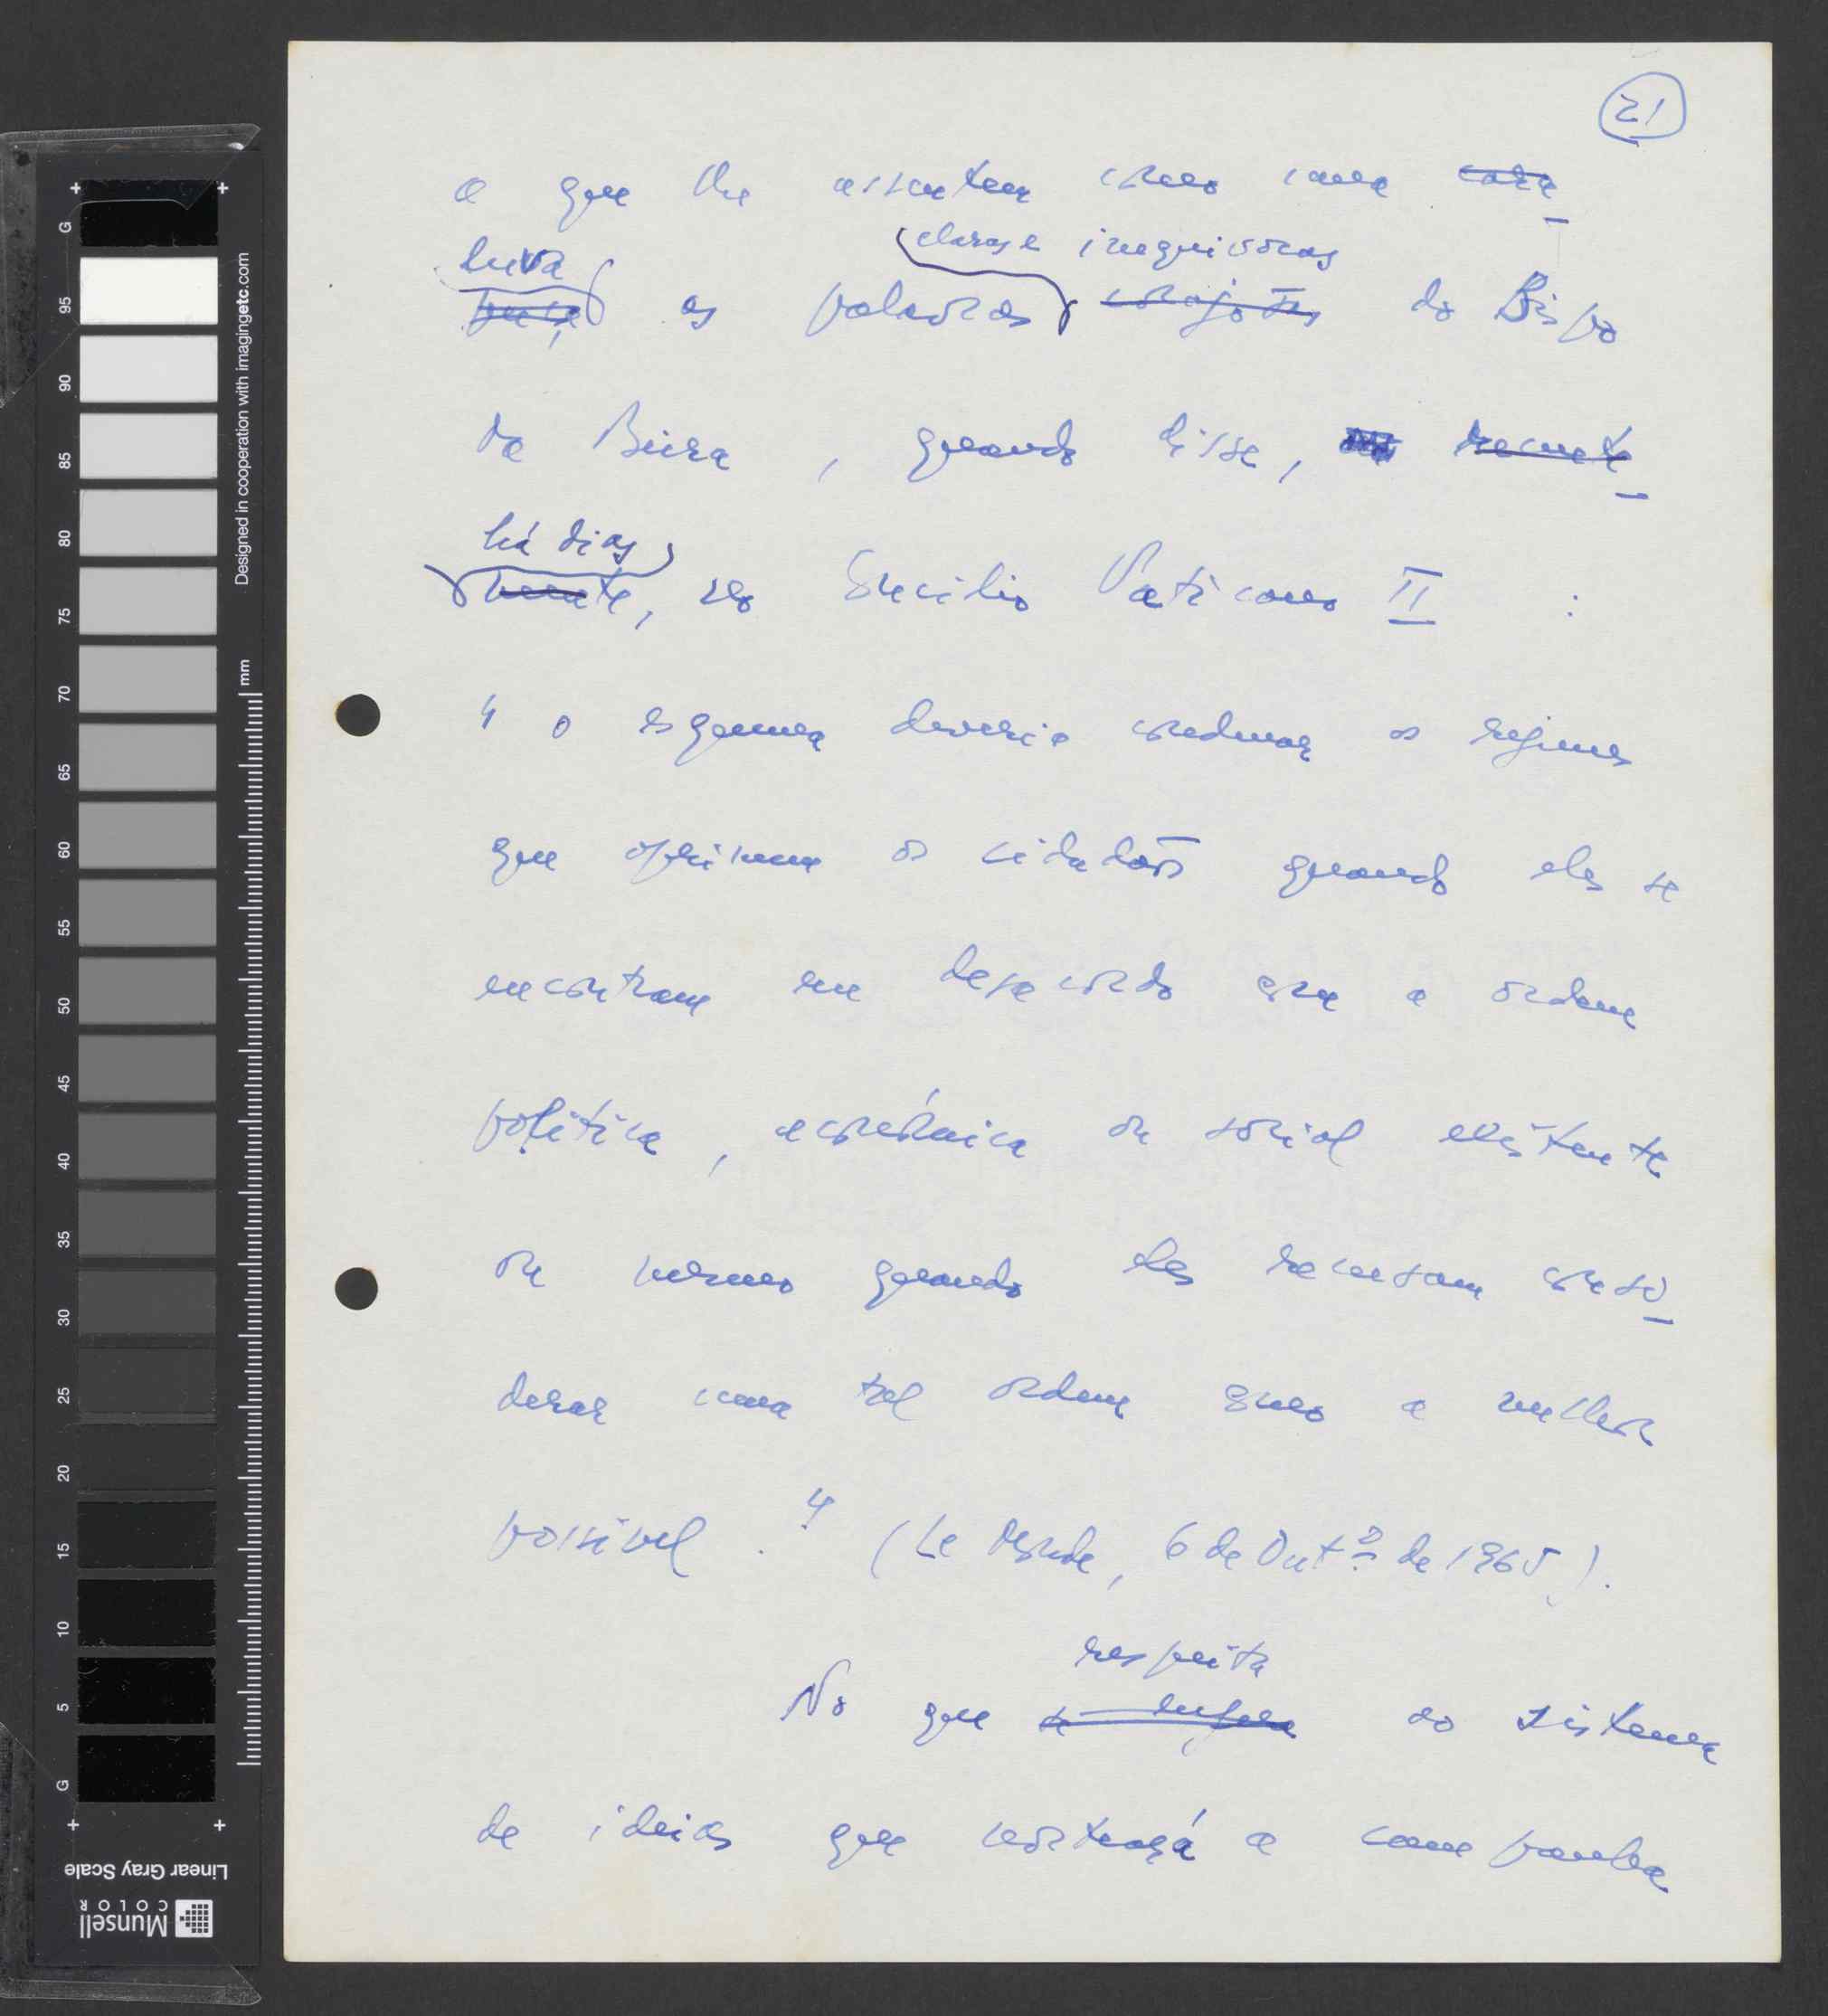 21
a que lhe assentam como uma cara_
claras e inequívocas
luva
puça as palavras corajosas do Bispo
da Beira, quando disse, recente_
há dias
mente, no Concílio Vaticano II :
" o esquema deveria condenar os regimes
que oprimem os cidadãos quando eles se
encontram em desacordo com a ordem
política, económica ou social existente
ou mesmo quando eles recusam consi_
derar uma tal ordem como a melhor
possível . " (Le Monde, 6 de Outº de 1965).
respeita
No que se refere ao sistema
de ideias que norteará a campanha
G
95
90
85
80
75
70
65
60
55
50
45
40
35
30
25
20
15
10
5
G
Designed in cooperation with imagingetc.com
mm
Linear Gray Scale
Munsell
COLOR